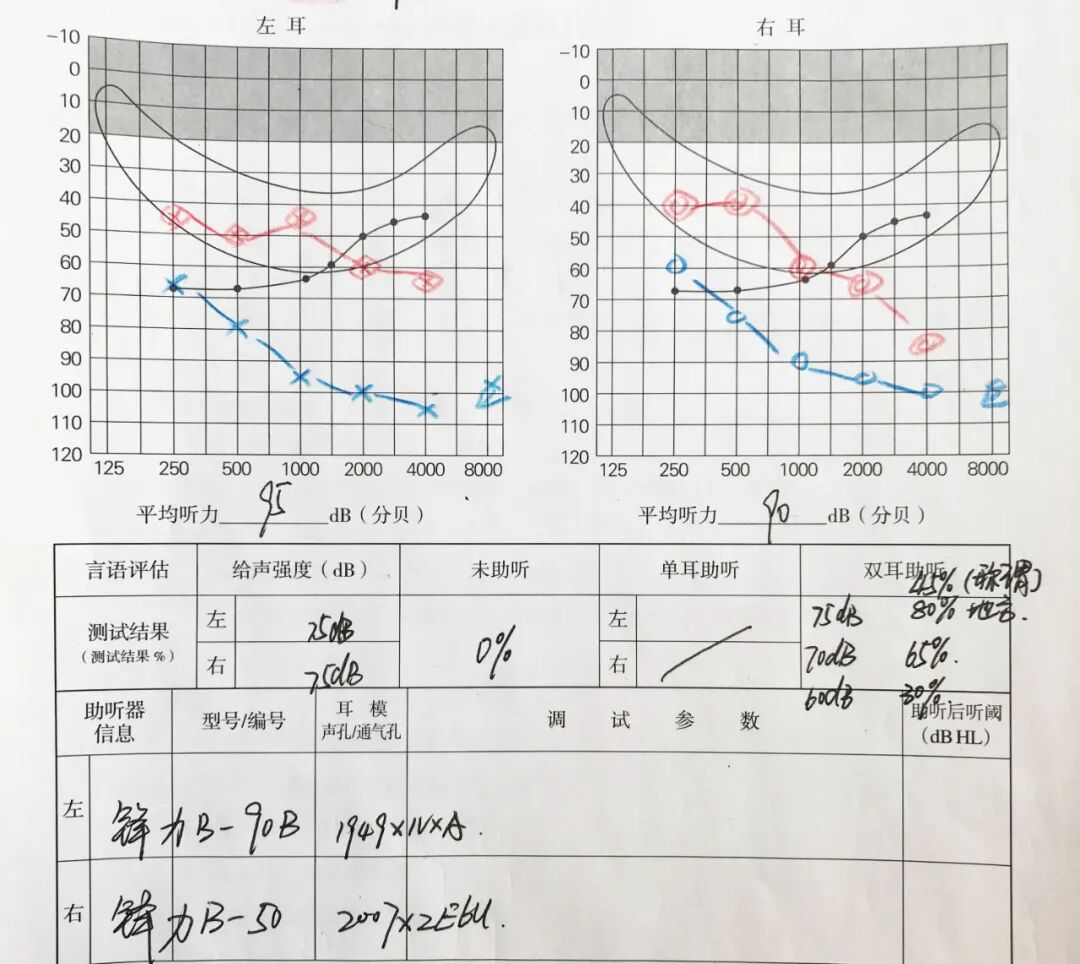 左耳 右耳
-10 -10
0 0
10 10
20 20
30 30
40 40
50 50
60 60
70 70
80 80
90 90
100 100
110 110
120 120
125 250 500 1000 2000 4000 8000 125 250 500 1000 2000 4000 8000
平均听力 95 dB(分贝) 平均听力 90 dB(分贝)
言语评估 给声强度(dB) 未助听 单耳助听 双耳助听
45%
测试结果
(测试结果%)
左 75dB 0% 左 75dB 80%
右 75dB 右 70dB 65%.
60dB 30%.
助听器
信息
型号/编号 耳模
声孔/通气孔
调试参数 助听后听阈
(dB HL)
左 锋力B-90B 1949×IV×A.
右 锋力B-50 2007×2E6U.